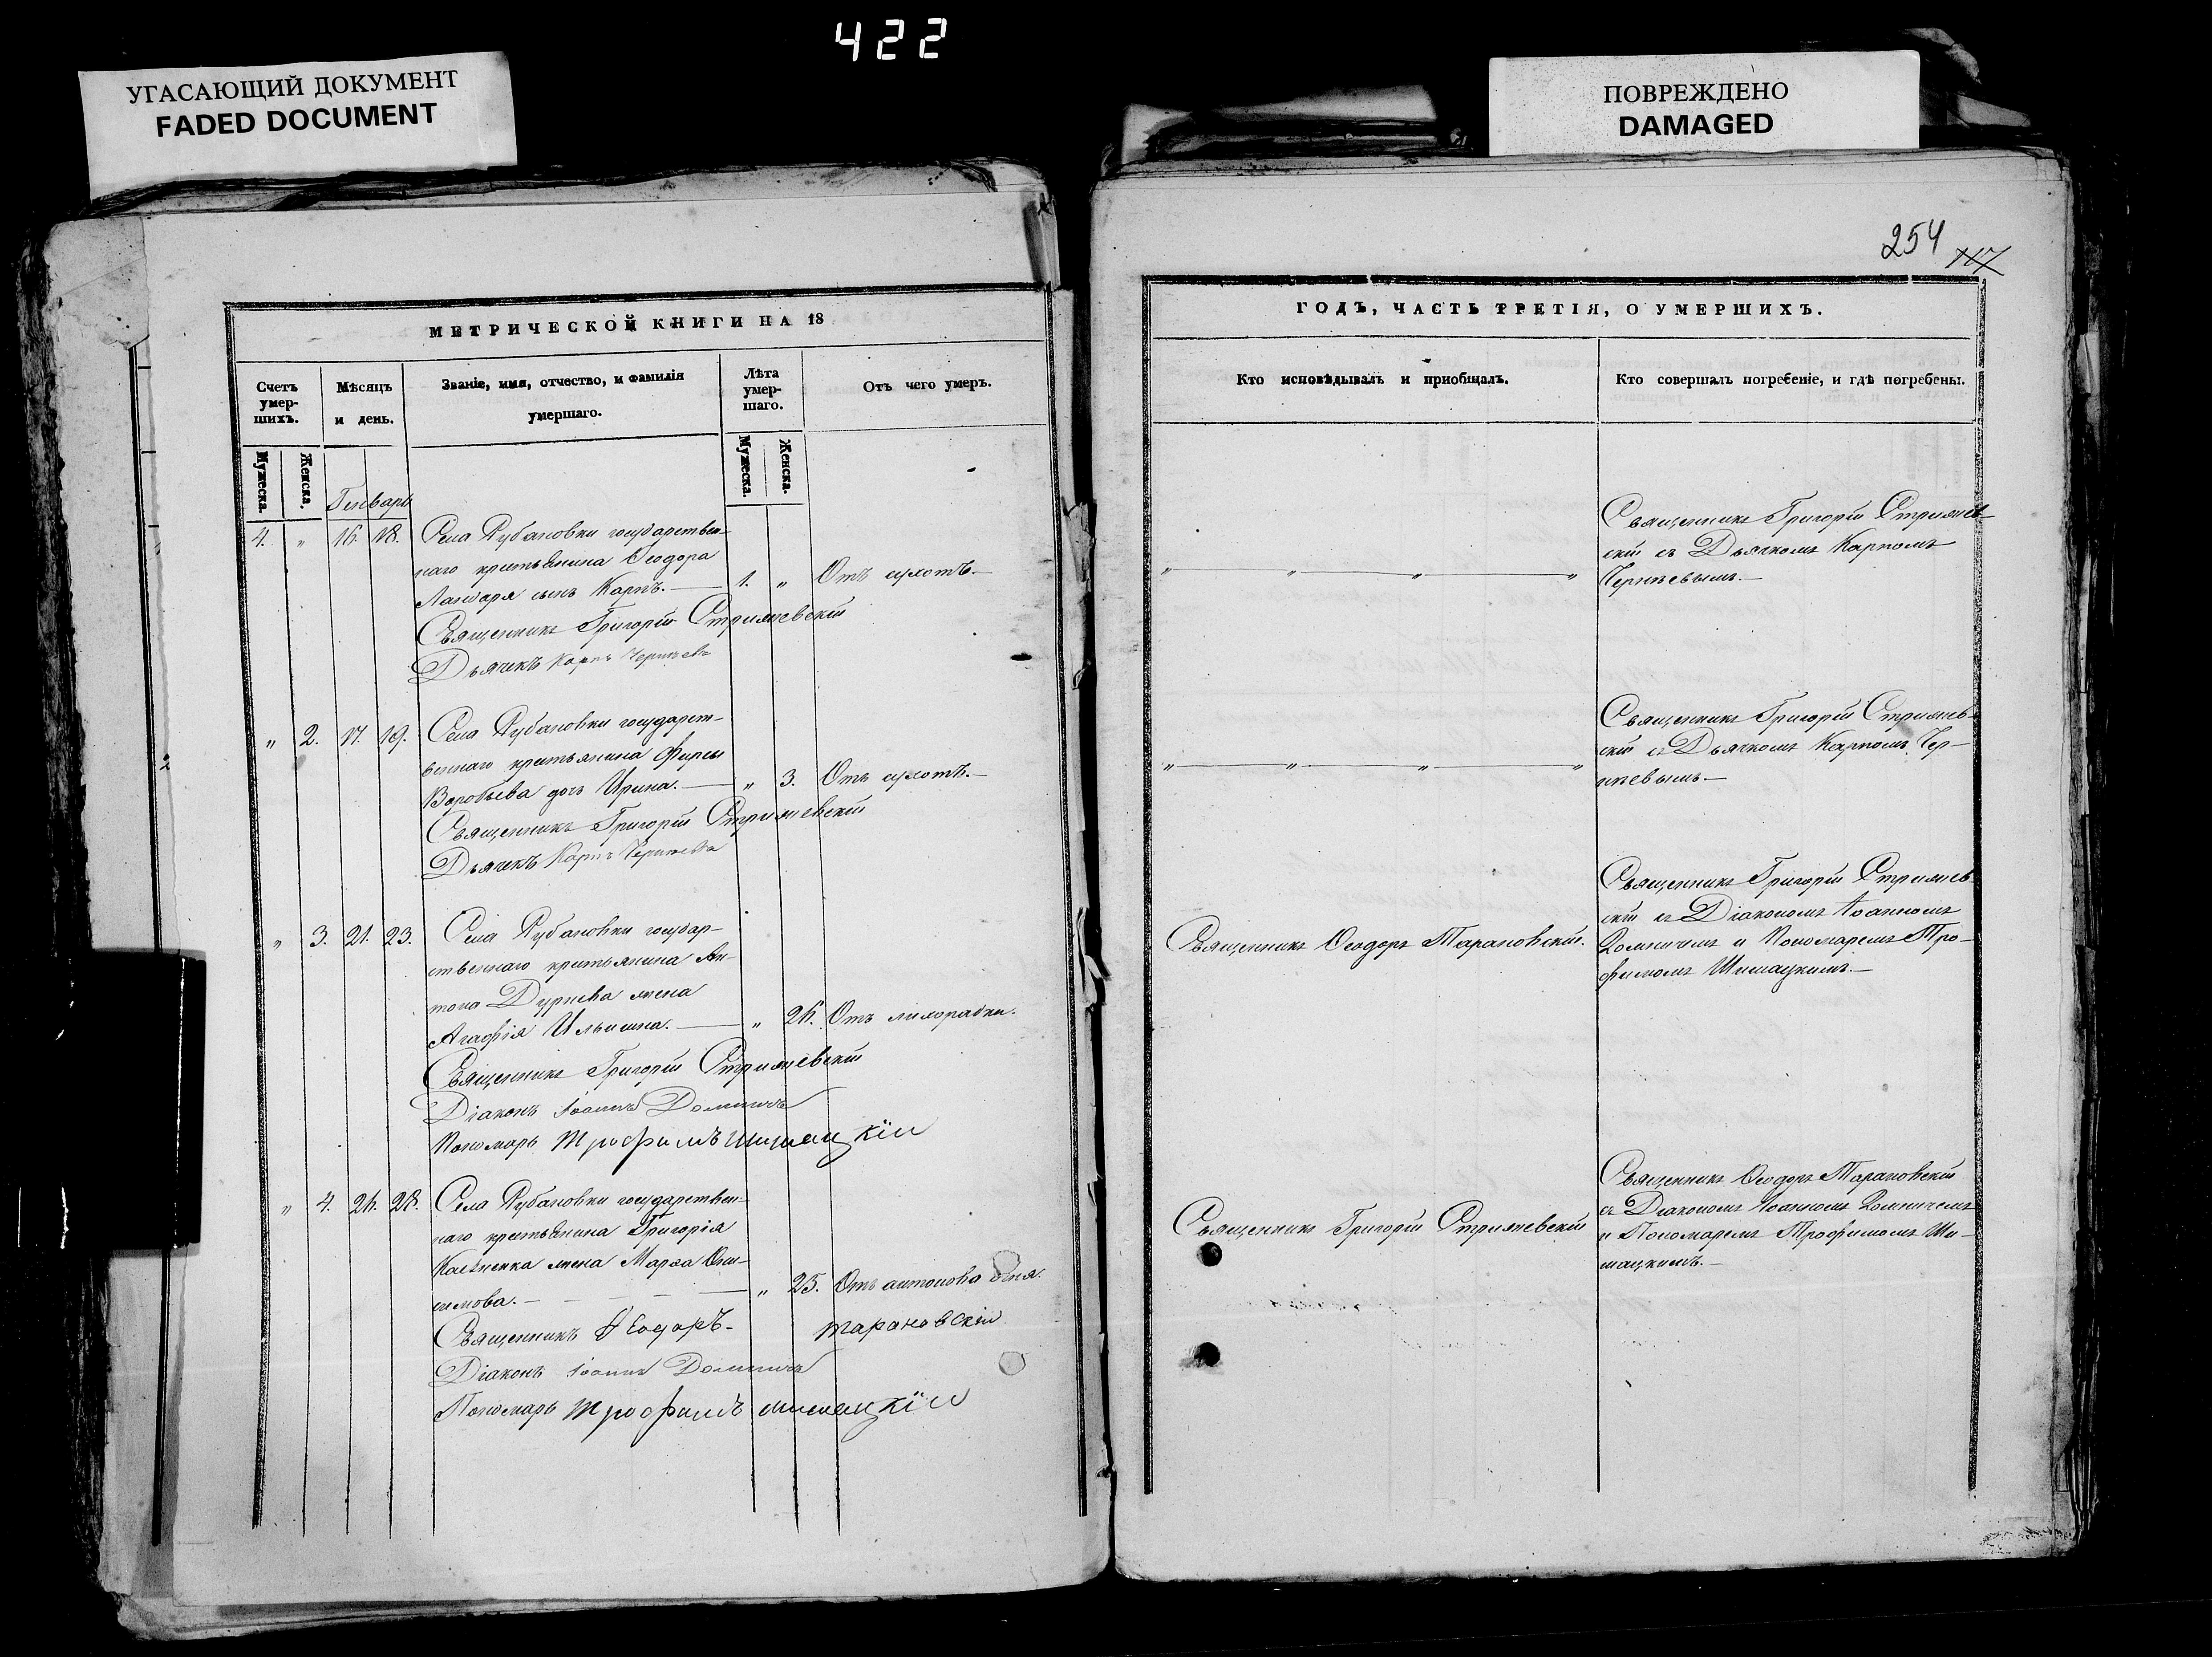 422
УГАСАЮЩИЙ ДОКУМЕНТ
FADED DOCUMENT
ПОВРЕЖДЕНО
DAMAGED
МЕТРИЧЕСКОЙ КНИГИ НА 18
Счетъ умер- шихъ.
Мѣсяцъ и день.
Званіе, имя, отчество, и фамилія умершаго.
Лѣта умер- шаго.
Отъ чего умеръ.
Мужеска. Женска. Мужеска. Женска.
Генварь
4. „ 16. 18. Села Рубановки государствен-
наго крестьянина Ѳеодора
сынъ Карпъ. — 1. „ Отъ сухотъ.—
Священникъ Григорій Стрижевскій
Дьячекъ Карпъ
„ 2. 17. 19. Села Рубановки государст-
веннаго крестьянина Фирсы
Воробьева дочь Ирина. — „ 3. Отъ сухотъ.—
Священникъ Григорій Стрижевскій
Дьячекъ Карпъ
„ 3. 21. 23. Села Рубановки государ-
ственнаго крестьянина Ан-
тона Дурнева жена
Агафія Ильина. — „ 26. Отъ лихорадки.
Священникъ Григорій Стрижевскій
Діаконъ Іоаннъ
Пономарь Трофимъ Шишацкій
„ 4. 26. 28. Села Рубановки государствен-
наго крестьянина Григорія
жена Марѳа Они-
симова. — „ 25. Отъ антонова огня.
Священникъ Ѳеодоръ Тарановскій
Діаконъ Іоаннъ
Пономарь Трофимъ Шишацкій
254
117
ГОДЪ, ЧАСТЬ ТРЕТІЯ, О УМЕРШИХЪ.
Кто исповѣдывалъ и пріобщалъ.
Кто совершалъ погребеніе, и гдѣ погребены.
Священникъ Григорій Стрижев-
скій съ Дьячкомъ Карпомъ
„ — „ — „ — „
Священникъ Григорій Стрижев-
скій съ Дьячкомъ Карпомъ
„ — „ — „ — „
Священникъ Григорій Стрижев-
скій съ Діакономъ Іоанномъ
Священникъ Ѳеодоръ Тарановскій.
и Пономаремъ Тро-
фимомъ Шишацкимъ.—
Священникъ Ѳеодоръ Тарановскій
съ Діакономъ Іоанномъ
Священникъ Григорій Стрижевскій
и Пономаремъ Трофимомъ Ши-
шацкимъ.—